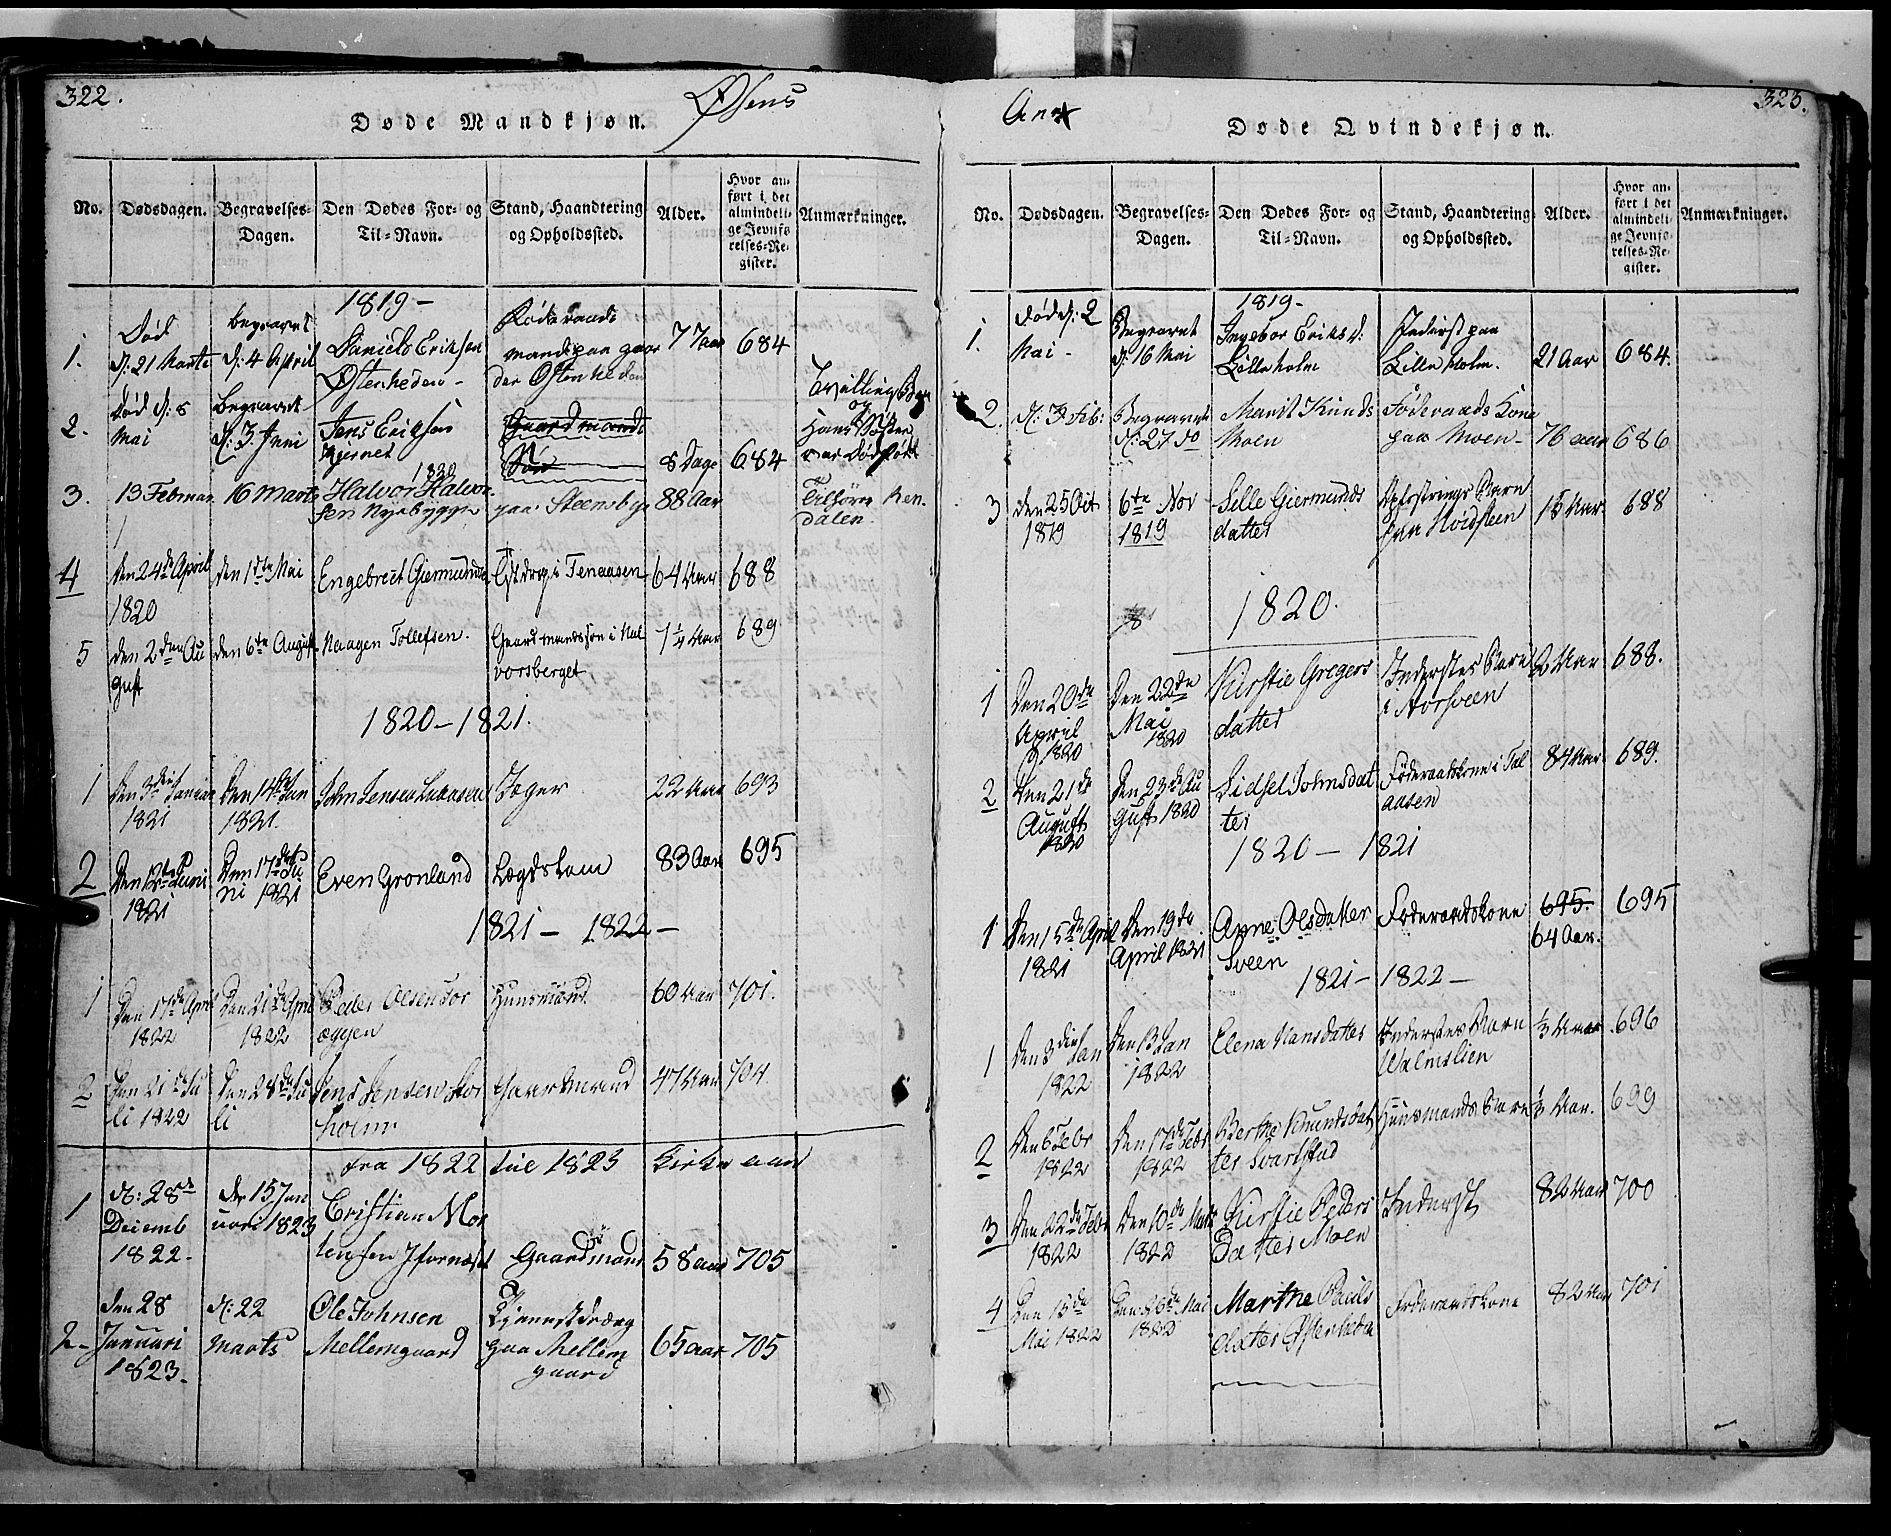 322.
Døde Mandkjøn.
Øsens
No.
Dødsdagen.
Begravelses-
Dagen.
Den Dødes For- og
Til-Navn.
Stand, Haandtering
og Opholdssted.
Alder.
Hvor an-
ført i det
almindeli-
ge Jevnfø-
relses-Re-
gister.
Anmærkninger.
1819-
1.
Død
d: 21 Marts
begravet
d: 4 April
Daniels Eriksen
Østenheden-
mand paa gaar
der Østenheden
77 aar
684
2.
Død d: 8
Mai
begravet
d: 3 Juni
Jens Eriksen
Gaardmands
Søn
8 Dage
684
Tvilling
og
Hans Søster
var dødfødt
1820
3.
13 Februar
16 Marts
Halvor Halvor-
sen Nysbyggn
paa Steensbye
88 Aar
dalen.
4
Den 24de April
1820
den 1ste Mai
Engebret Giermunds
i Tenaasen
64 Aar
688
5
den 2den Au
gust
den 6te August
Haagen Tollefsen.
Gaardmandssøn i Hal
vorsberget
1¼ Aar
689
1820-1821.
1
Den 3die Januar
1821
Den 14de Jan
1821.
John Jensen
Jæger
22 Aar
693
2
Den 12te Juni
1821
Den 17de Ju
ni 1821
Even Gronland
Lægdslem
83 Aar
695
1821- 1822-
1
Den 17de April
1822
Den 21de April
1822
Peder Olsen Tor
æggen
Huusmand.
60 Aar
701.
2
Den 21de Ju
li 1822
Den 28de Ju
li
Jens Jensen Stor
holm
Gaardmand
47 Aar
704.
fra 1822 til 1823 Kirke aar
1
d: 28de
Decemb
1822-
d: 15 Jan
uari 1823
Cristian Mor
tensen
Gaardmand
58 aar
705
2-
den 28
Januari
1823-
d: 22
Marts
Ole Johnsen
Mellemgaard
Tjenestdræng
paa Mellem
gaard
65 aar
705
Anx
Døde Qvindekjøn.
323.
No.
Dødsdagen.
Begravelses-
Dagen.
Den Dødes For- og
Til-Navn.
Stand, Haandtering
og Opholdssted.
Alder.
Hvor an-
ført i det
almindeli-
ge Jevnfø-
relses-Re-
gister.
Anmærkninger.
1819-
1.
død d: 2
Mai-
Begravet
d: 16 Mai
Ingebor Eriksd:
Lilleholm
Inderst paa
Lilleholm.
21 Aar
684.
2.
d: 7 Feb:
Begravet
d: 27 do
Marit Knuds
Moen
Føderaads Kone
paa Moen-
76 aar
686
3
den 25 Oct
1819
6te Nov
1819
Sille Giermunds
datter
Opfostrings Barn
paa Nordsteen
15 Aar.
688
1820.
1
Den 20de
April
1820
Den 22de
Mai
1820
Kirstie Gregers
datter
Inderstes Barn
i Aasveen
2 Aar
688.
2
Den 21de
August
1820
Den 23de Au
gust 1820
Sidsel Johnsdat
ter
Føderaadskone i Tal
aasen
84 Aar.
689.
1820 - 1821
1
Den 15de April
1821
Den 19de
April 1821
Anne Olsdatter
Sveen
Føderaadskone
695.
64 Aar.
695
1821- 1822-
1
Den 3die Jan
1822
Den 13 Jan
1822
Elena Hansdatter
Inderstes Barn
Holmslien
⅓ Aar
696
2
Den 6 Febr
1822
Den 17de Febr
1822
Berthe Knudsdat
ter Svartstad
Huusmands Barn
⅓ Aar.
699
3
Den 22de Febr
1822
Den 10de Marts
1822
Kirstie Peders
Datter Moen
Inderst
82 Aar
700
4
Den 13de
Mai 1822
Den 26de Mai
1822
Marthe Pauls
datter Østenheden
Føderaadskone
82 Aar
701